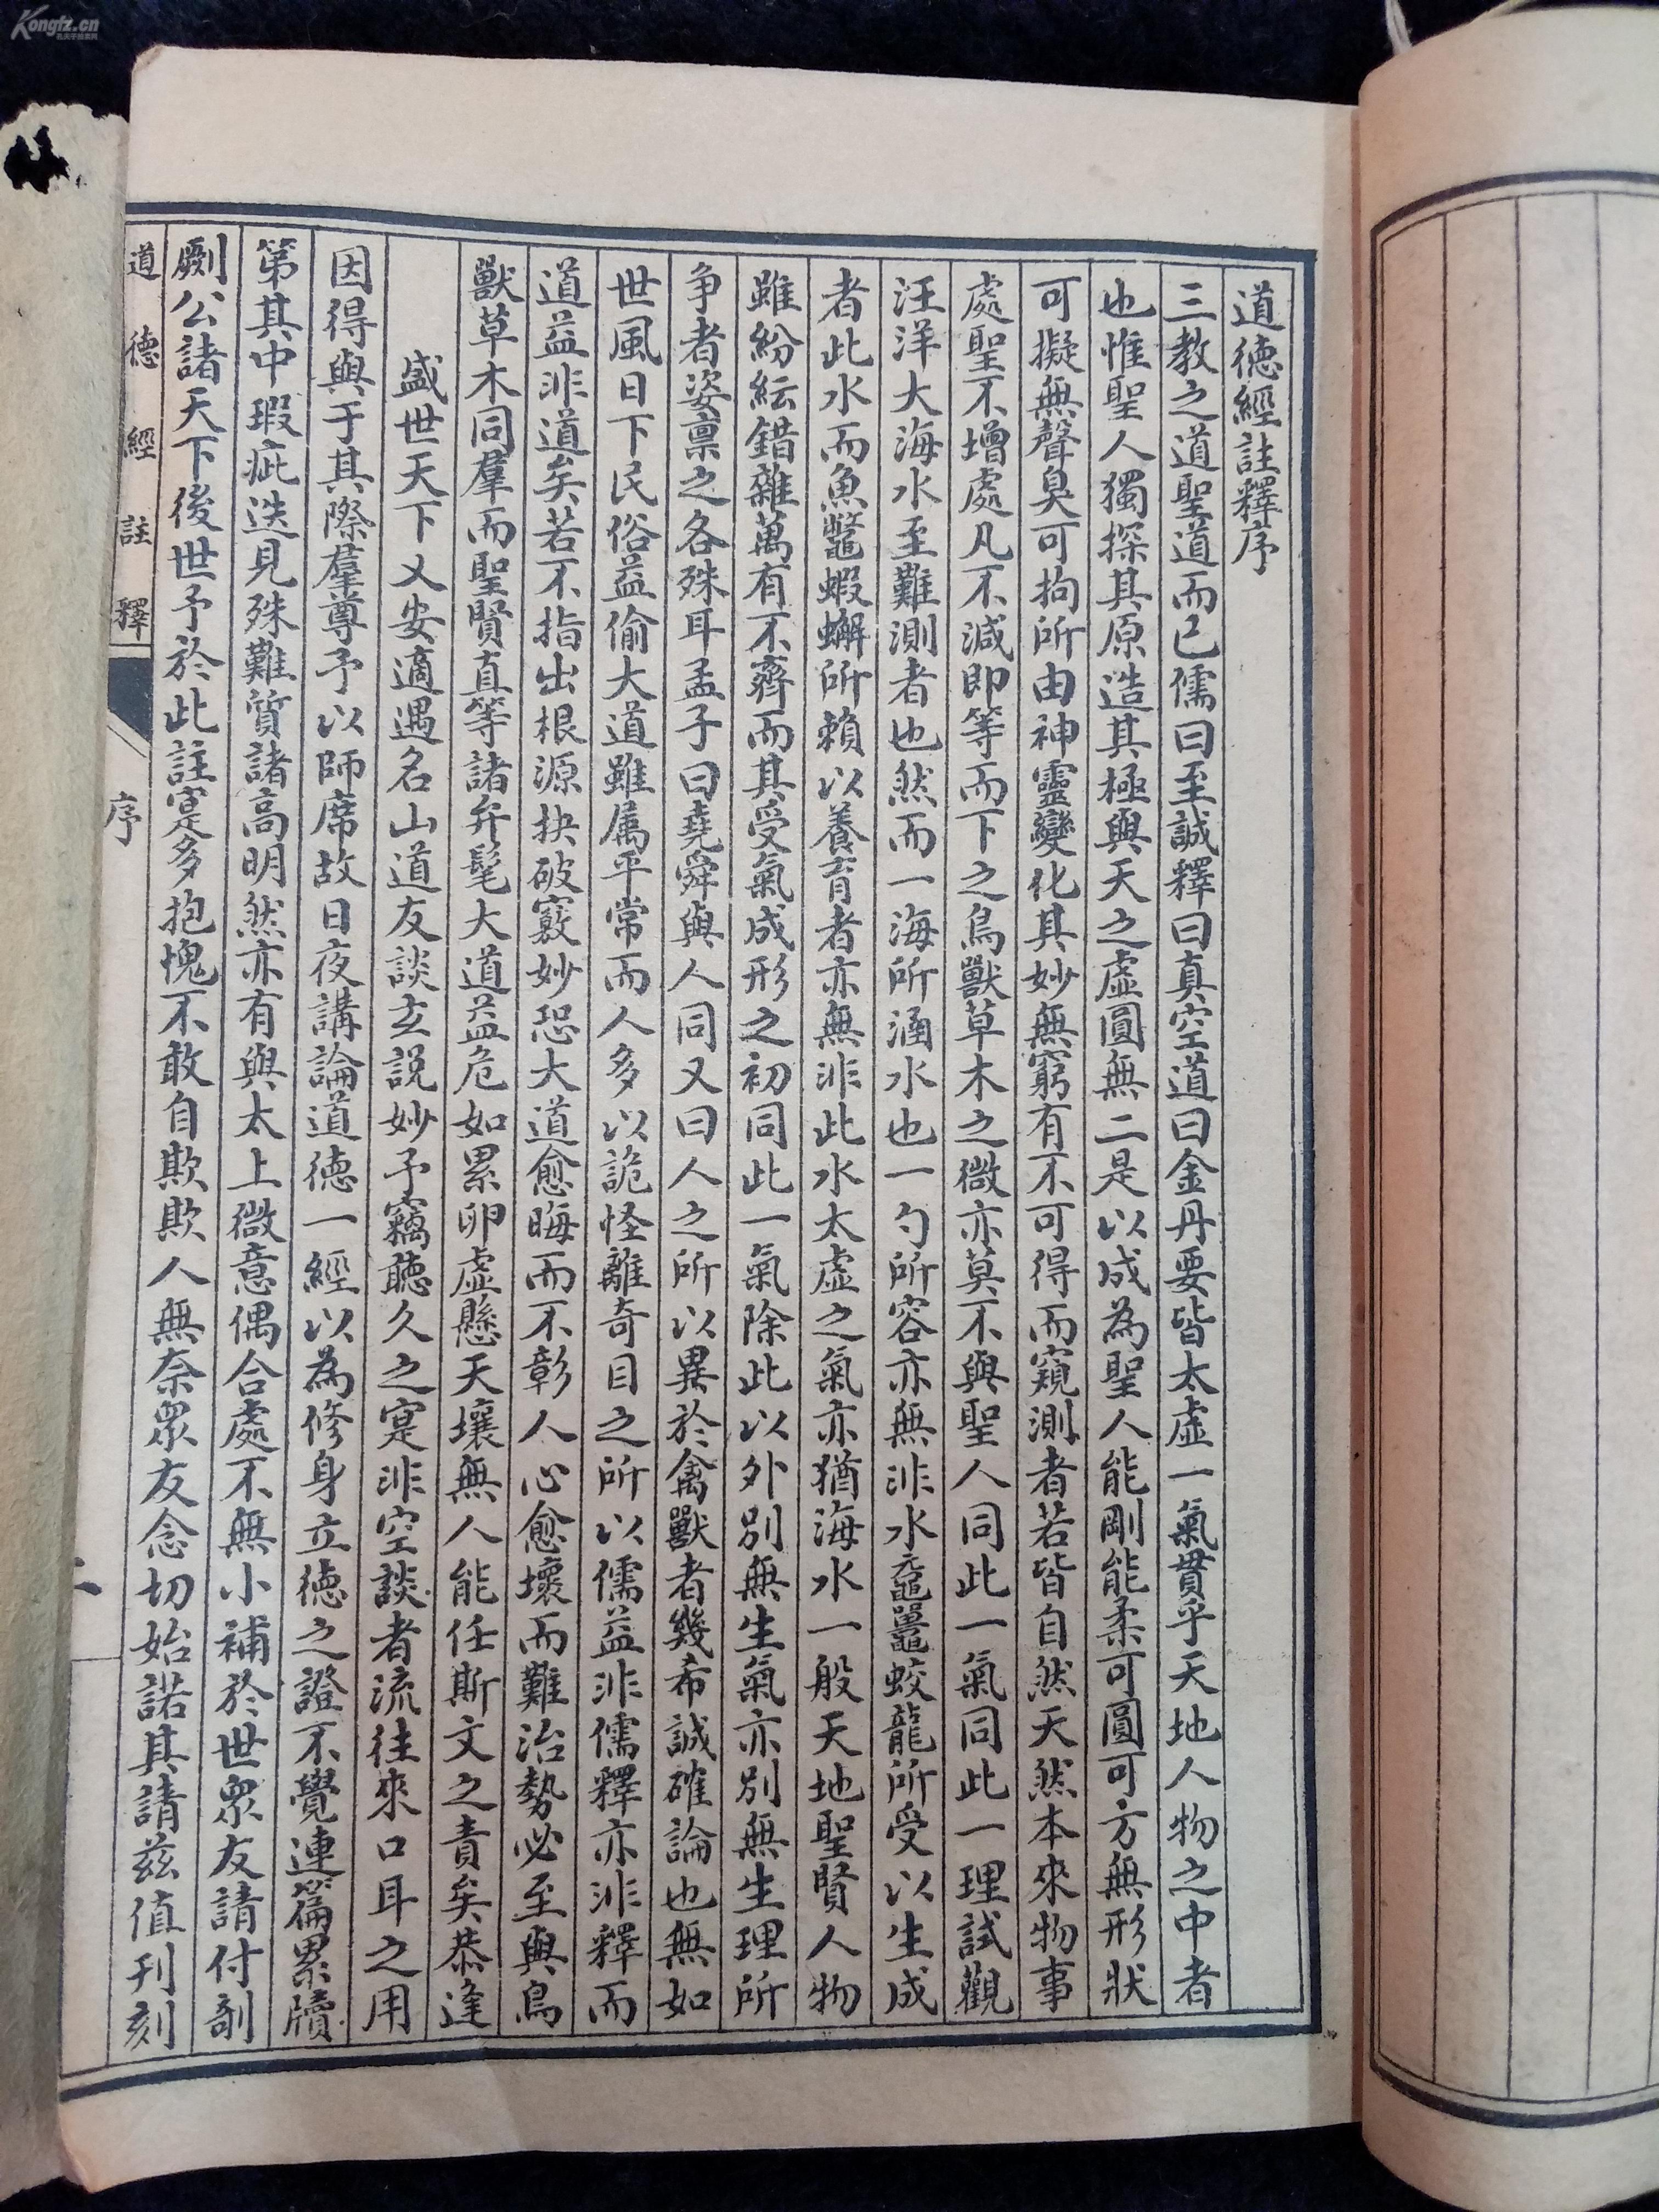 道德經註釋序
三教之道聖道而已儒曰至誠釋曰真空道曰金丹要皆太虛一氣貫乎天地人物之中者
也惟聖人獨探其原造其極與天之虛圓無二是以成為聖人能剛能柔可圓可方無形狀
可擬無聲臭可拘所由神靈變化其妙無窮有不可得而窺測者若皆自然天然本來物事
處聖不增處凡不減即等而下之鳥獸草木之微亦莫不與聖人同此一氣同此一理試觀
汪洋大海水至難測者也然而一海所涵水也一勺所容亦無非水黿鼉蛟龍所受以生成
者此水而魚鼈蝦蠏所賴以養育者亦無非此水太虛之氣亦猶海水一般天地聖賢人物
雖紛紜錯雜萬有不齊而其受氣成形之初同此一氣除此以外別無生氣亦別無生理所
爭者姿稟之各殊耳孟子曰堯舜與人同又曰人之所以異於禽獸者幾希誠確論也無如
世風日下民俗益偷大道雖属平常而人多以詭怪離奇目之所以儒益非儒釋亦非釋而
道益非道矣若不指出根源抉破竅妙恐大道愈晦而不彰人心愈壞而難治勢必至與鳥
獸草木同羣而聖賢直等諸弁髦大道益危如累卵虛懸天壤無人能任斯文之責矣恭逢
盛世天下乂安適遇名山道友談玄說妙予竊聽久之寔非空談者流往來口耳之用
因得與于其際羣尊予以師席故日夜講論道德一經以為修身立德之證不覺連篇累牘
第其中瑕疵迭見殊難質諸高明然亦有與太上微意偶合處不無小補於世眾友請付剞
劂公諸天下後世予於此註寔多抱愧不敢自欺欺人無奈眾友念切始諾其請茲值刊刻
道德經註釋
序
Kongfz.cn